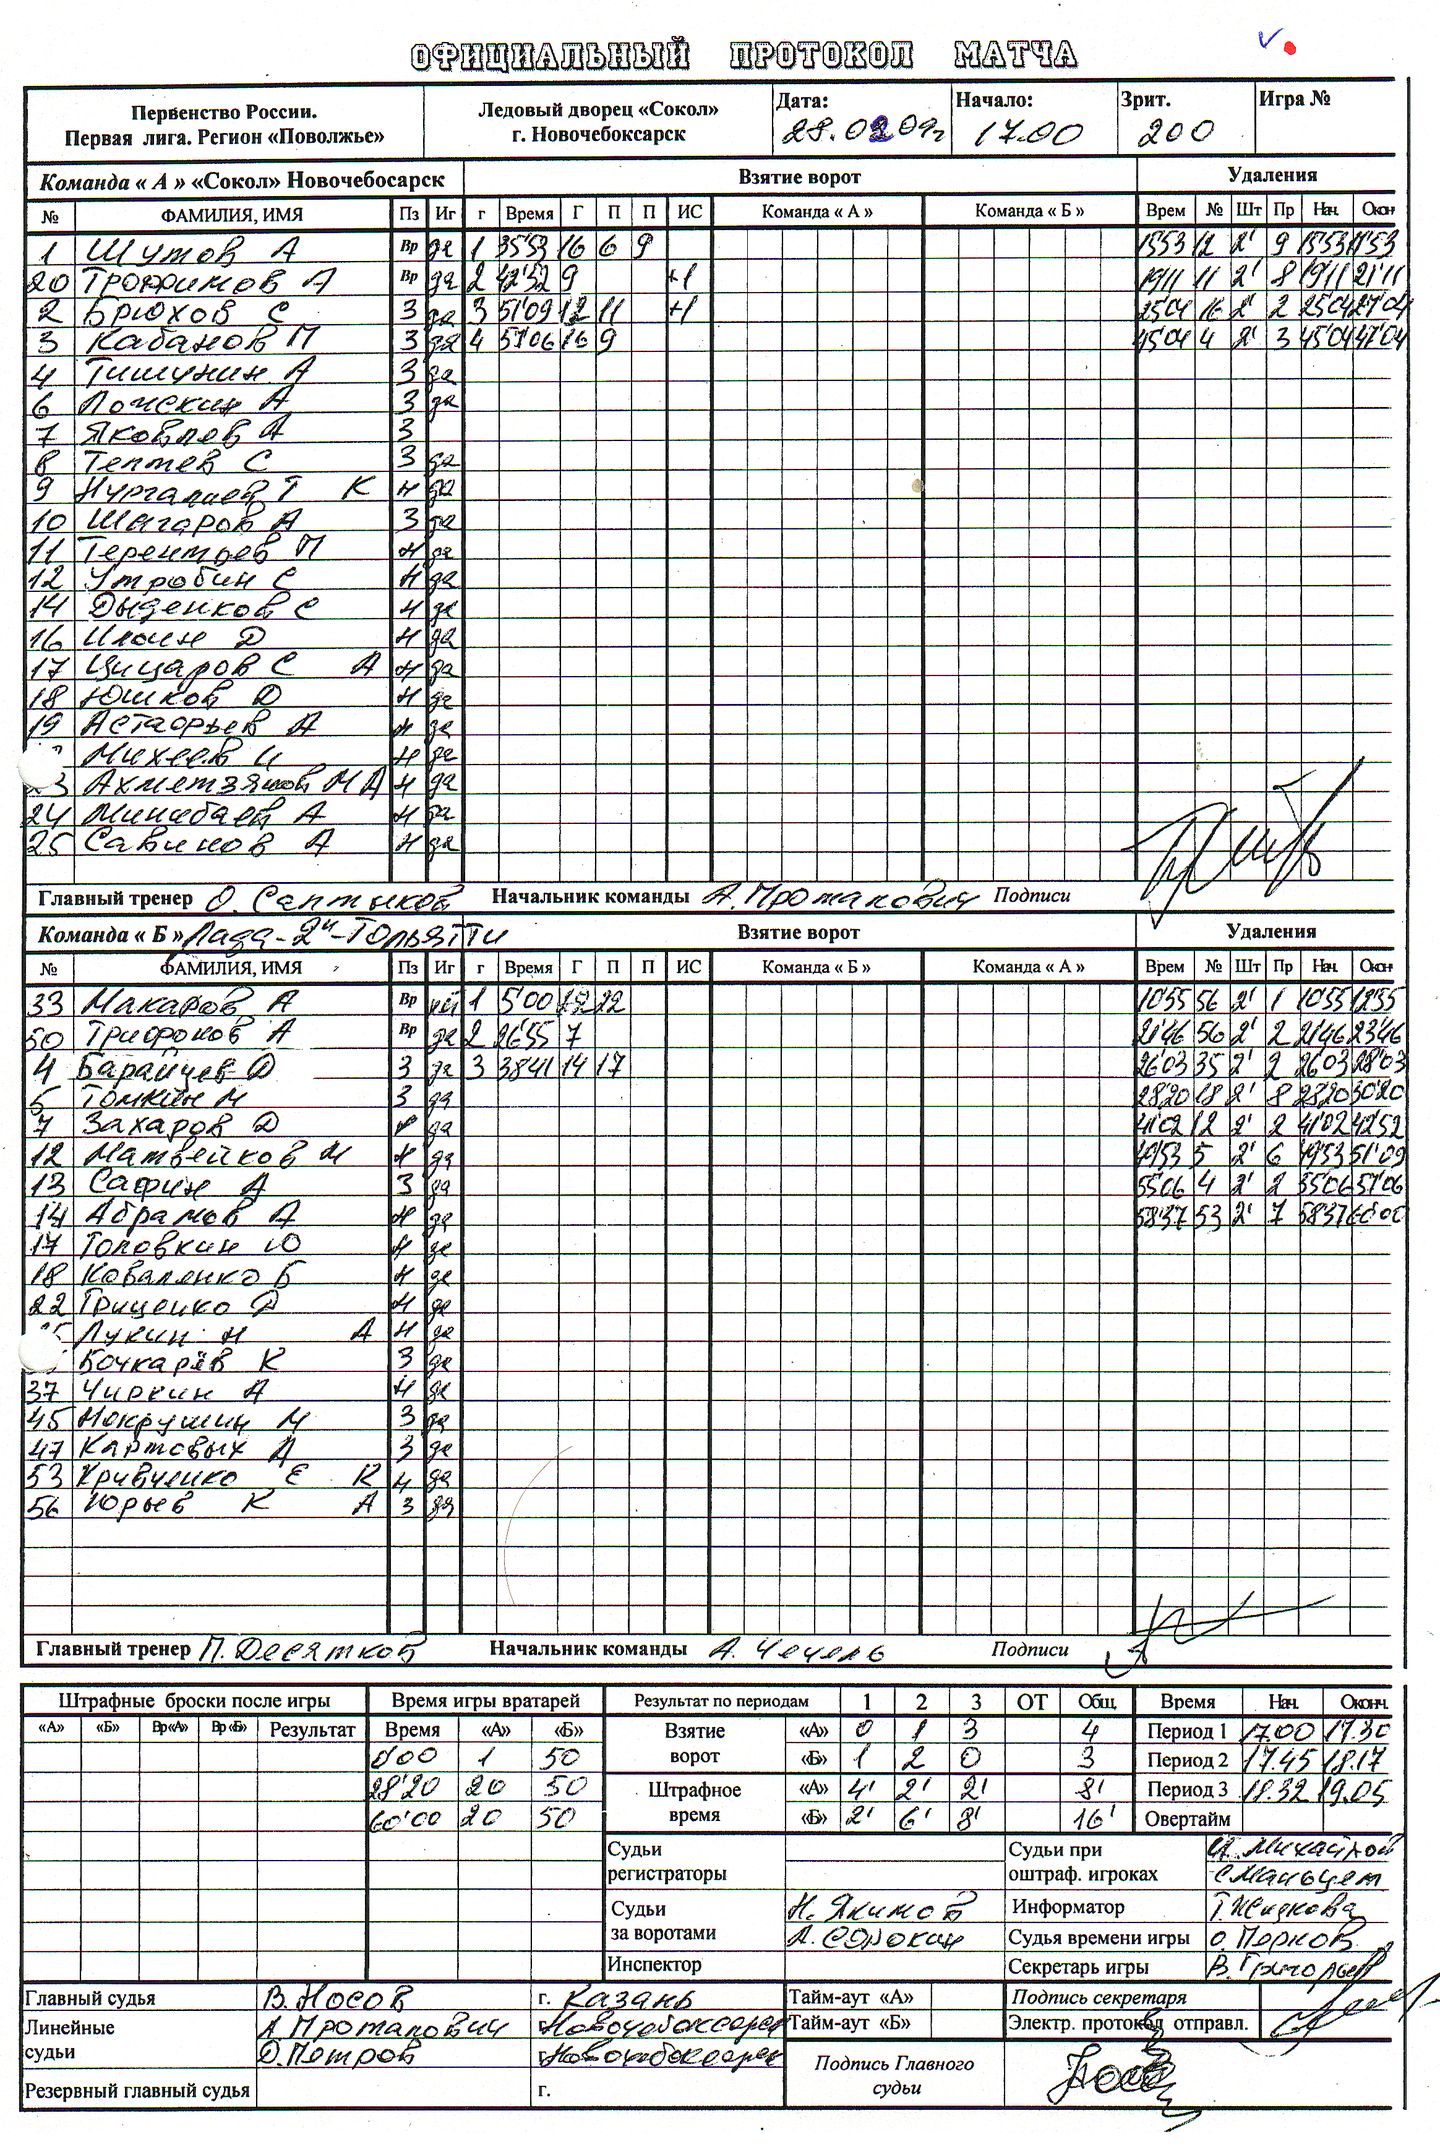 ОФИЦИАЛЬНЫЙ ПРОТОКОЛ МАТЧА
Первенство России. Первая лига. Регион «Поволжье»
Ледовый дворец «Сокол» г. Новочебоксарск
Дата: 28.02 09г
Начало: 17.00
Зрит. 200
Игра №
Команда « А » «Сокол» Новочебосарск Взятие ворот Удаления
№ ФАМИЛИЯ, ИМЯ Пз Иг г Время Г П П ИС Команда « А » Команда « Б » Врем № Шт Пр Нач. Окон
1 Шутов А Вр да 1 35'53 16 6 9 15'53 12 2' 9 15'53 17'53
20 Трофимов А Вр да 2 42'52 9 +1 19'11 11 2' 8 19'11 21'11
2 Брюхов С З да 3 51'09 12 11 +1 25'04 16 2' 2 25'04 27'04
3 Кабанов П З да 4 57'06 16 9 45'04 4 2' 3 45'04 47'04
4 Тишунин А З да
6 Ложскин А З да
7 Яковлев А З
8 Тептев С З да
9 Нургалиев Т К Н да
10 Шагаров А З да
11 Терентьев П Н да
12 Утробин С Н да
14 Дыденков С Н да
16 Ильин Д Н да
17 Цицаров С А Н да
18 Юшков Д Н да
19 Астафьев А Н да
Михеев И Н да
23 Ахметзянов М А Н да
24 Минибаев А Н да
25 Савинов А Н да
Главный тренер О. Салтыков Начальник команды А. Протапович Подписи
Команда « Б » Лада-2"-Тольятти Взятие ворот Удаления
№ ФАМИЛИЯ, ИМЯ Пз Иг г Время Г П П ИС Команда « Б » Команда « А » Врем № Шт Пр Нач. Окон
33 Макаров А Вр 1 5'00 22 10'55 56 2' 1 10'55 12'55
50 Трифонов А Вр да 2 26'55 7 21'46 56 2' 2 21'46 23'46
4 Барайцев Д З да 3 38'41 14 17 26'03 35 2' 2 26'03 28'03
5 Томкин М З да 28'20 18 2' 8 28'20 30'20
7 Захаров Д да 41'02 12 2' 2 41'02 42'52
12 Матвейков М Н да 49'53 5 2' 6 49'53 51'09
13 Сафин А З да 55'06 4 2' 2 55'06 57'06
14 Абрамов А Н да 58'37 53 2' 7 58'37 60'00
17 Головкин Ю Н да
18 Коваленко Б Н да
22 Гриценко Д Н да
Лукин Н А Н да
Бочкарёв К З да
37 Чиркин А Н да
45 Нокрушин М З да
47 Картовых А З да
53 Кривченко Е К Н да
56 Юрьев К А З да
Главный тренер П. Десятков Начальник команды А. Чечель Подписи
Штрафные броски после игры Время игры вратарей Результат по периодам 1 2 3 ОТ Общ. Время Нач. Оконч.
«А» «Б» Вр«А» Вр «Б» Результат Время «А» «Б» Взятие ворот «А» 0 1 3 4 Период 1 17.00 17.30
0'00 1 50 «Б» 1 2 0 3 Период 2 17.45 18.17
28'20 20 50 Штрафное время «А» 4' 2' 2' 8' Период 3 18.32 19.05
60'00 20 50 «Б» 2' 6' 8' 16' Овертайм
Судьи регистраторы
Судьи при оштраф. игроках Михайлов
С Мальцев
Судьи за воротами Н. Якимов
А. Сорокин
Информатор Т. Жидкова
Судья времени игры О. Перков
Инспектор
Секретарь игры В. Григорьев
Главный судья В. Носов г. Казань Тайм-аут «А» Подпись секретаря
Линейные судьи А. Протапович г. Новочебоксарск Тайм-аут «Б» Электр. протокол отправл.
О. Петров г. Новочебоксарск Подпись Главного судьи
Резервный главный судья г.